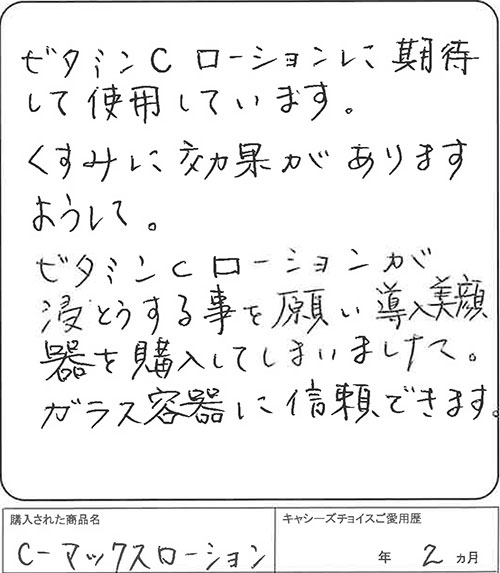 ビタミンC ローションに 期待
して 使用しています。
くすみに 効果が あります
ようして。
ビタミンC ローションが
浸とうする事を願い 導入美顔
器を購入してしまいました。
ガラス容器に信頼できます。
購入された商品名
C-マックスローション
キャシーズチョイスご愛用歴
年 2 ヵ月